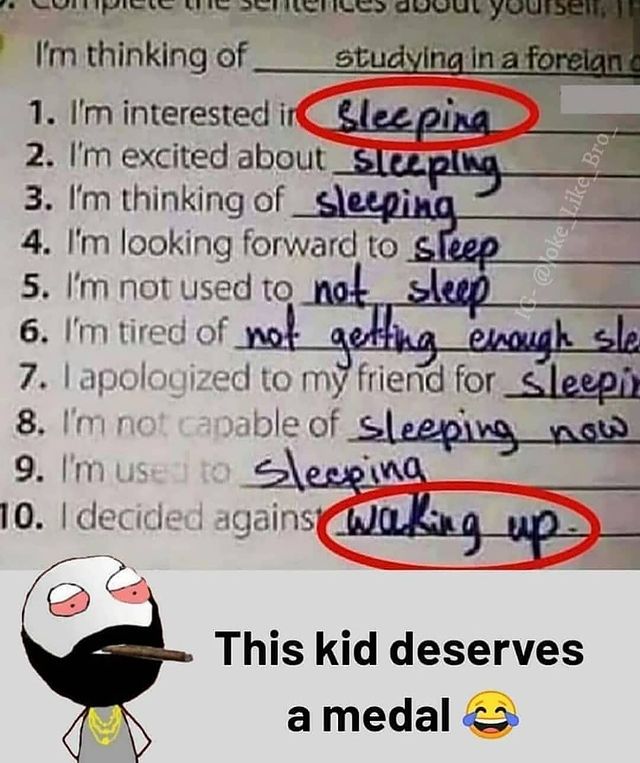 Complete the sentences about yourself.
I'm thinking of ______ studying in a foreign
1. I'm interested in sleeping
2. I'm excited about sleeping
3. I'm thinking of sleeping
4. I'm looking forward to sleep
5. I'm not used to not sleep
6. I'm tired of not getting enough sle
7. I apologized to my friend for sleepin
8. I'm not capable of sleeping now
9. I'm used to sleeping
10. I decided against waking up.
IG- @Joke_Like_Bro_
This kid deserves
a medal 😂